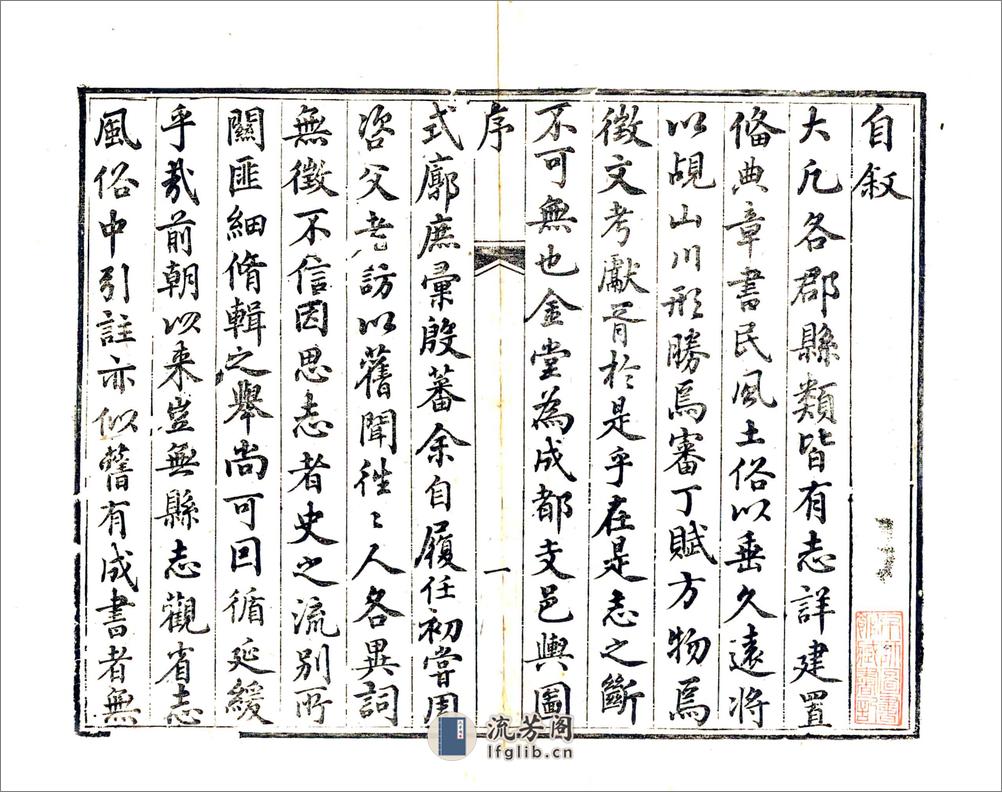 自叙
大凡各郡縣類皆有志詳建置
偹典章書民風土俗以垂久遠將
以覘山川形勝焉審丁賦方物焉
徵文考獻胥於是乎在是志之斷
不可無也金堂為成都支邑輿圖
序
一
式廓庶彙殷蕃余自履任初嘗周
咨父老訪以舊聞徃〻人各異詞
無徵不信因思志者史之流别所
關匪細脩輯之舉尚可因循延緩
乎哉前朝以来豈無縣志觀省志
風俗中引註亦似舊有成書者無
流芳阁
lfglib.cn